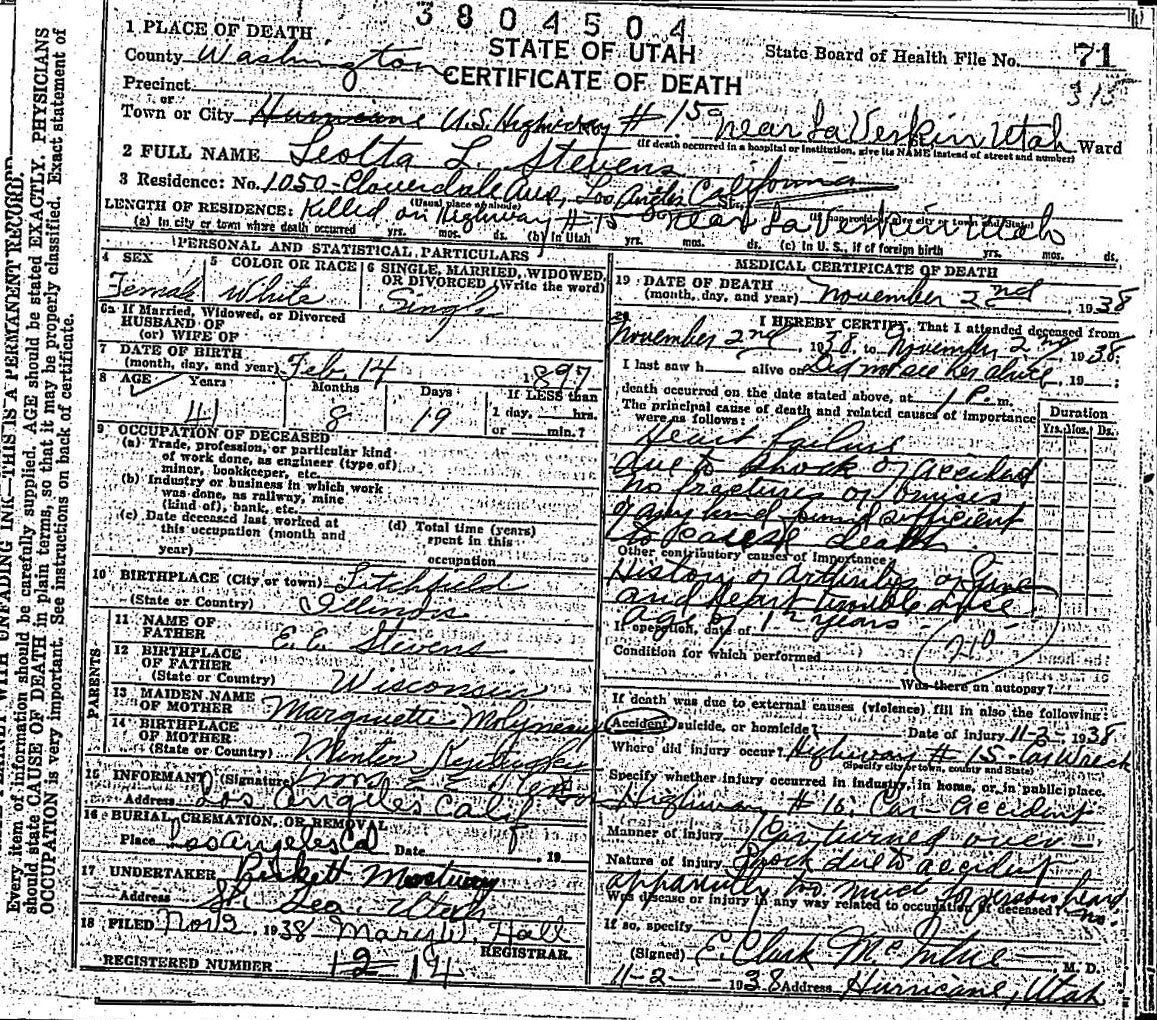 3804504
1 PLACE OF DEATH
STATE OF UTAH
State Board of Health File No. 71
County Washington
CERTIFICATE OF DEATH
315
Precinct
or
Town or City Hurricane U.S. Highway # 15 near LaVerkin Utah Ward
(If death occurred in a hospital or institution, give its NAME instead of street and number)
2 FULL NAME Leolta L. Stevens
3 Residence: No. 1050 Cloverdale Ave, Los Angeles California St.
(Usual place of abode)
(If nonresident give city or town and State)
LENGTH OF RESIDENCE: Killed on Highway # 15 near LaVerkin Utah
(a) In city or town where death occurred yrs. mos. ds. (b) In Utah yrs. mos. ds. (c) In U. S., if of foreign birth yrs. mos. ds.
PERSONAL AND STATISTICAL PARTICULARS
4 SEX
Female
5 COLOR OR RACE
White
6 SINGLE, MARRIED, WIDOWED, OR DIVORCED (Write the word)
Single
6a If Married, Widowed, or Divorced
HUSBAND OF
(or) WIFE OF
7 DATE OF BIRTH
(month, day, and year) Feb 14 1897
8 AGE Years Months Days If LESS than
41 8 19 1 day, hrs.
or min.?
9 OCCUPATION OF DECEASED
(a) Trade, profession, or particular kind
of work done, as engineer (type of)
minor, bookkeeper, etc.
(b) Industry or business in which work
was done, as railway, mine
(kind of), bank, etc.
(c) Date deceased last worked at
this occupation (month and
year)
(d) Total time (years)
spent in this
occupation
10 BIRTHPLACE (City or town) Litchfield
(State or Country) Illinois
PARENTS
11 NAME OF
FATHER E. E. Stevens
12 BIRTHPLACE
OF FATHER
(State or Country) Wisconsin
13 MAIDEN NAME
OF MOTHER Marguette Molyneaux
14 BIRTHPLACE
OF MOTHER
(State or Country) Kentuckey
15 INFORMANT (Signature) Mrs E E
Address Los Angeles Calif
16 BURIAL, CREMATION, OR REMOVAL
Place Los Angeles Cal Date , 19
17 UNDERTAKER Mortuary
Address St. Geo. Utah
18 FILED Nov 3 1938 Mary W. Hall
REGISTRAR.
REGISTERED NUMBER 12 14
MEDICAL CERTIFICATE OF DEATH
19 DATE OF DEATH
(month, day, and year) November 2nd , 1938
20 I HEREBY CERTIFY, That I attended deceased from
November 2nd 1938, to November 2nd 1938;
I last saw h alive on Did not see her alive, 19 ;
death occurred on the date stated above, at 1 P. m.
The principal cause of death and related causes of importance
were as follows:
Duration
Yrs. Mos. Ds.
Heart failure
due to shock of accident
No fractures or bruises
of any kind found sufficient
to cause death.
Other contributory causes of importance
History of arthritis of Spine
and heart trouble since
Age of 12 years
If operation, date of
210
Condition for which performed
Was there an autopsy?
If death was due to external causes (violence) fill in also the following:
Accident, suicide, or homicide? Date of injury 11-2-1938
Where did injury occur? Highway # 15 - Car Wreck
(Specify city or town, county and State)
Specify whether injury occurred in industry, in home, or in public place.
Highway # 15. Car accident
Manner of injury Car turned over
Nature of injury Shock due to accident
apparently too much for person's heart
Was disease or injury in any way related to occupation of deceased? no.
If so, specify
(Signed) E. Clark McIntire M. D.
11-2-1938 Address Hurricane, Utah
WITH UNFADING INK—THIS IS A PERMANENT RECORD.
Every item of information should be carefully supplied. AGE should be stated EXACTLY. PHYSICIANS
should state CAUSE OF DEATH in plain terms, so that it may be properly classified. Exact statement of
OCCUPATION is very important. See instructions on back of certificate.